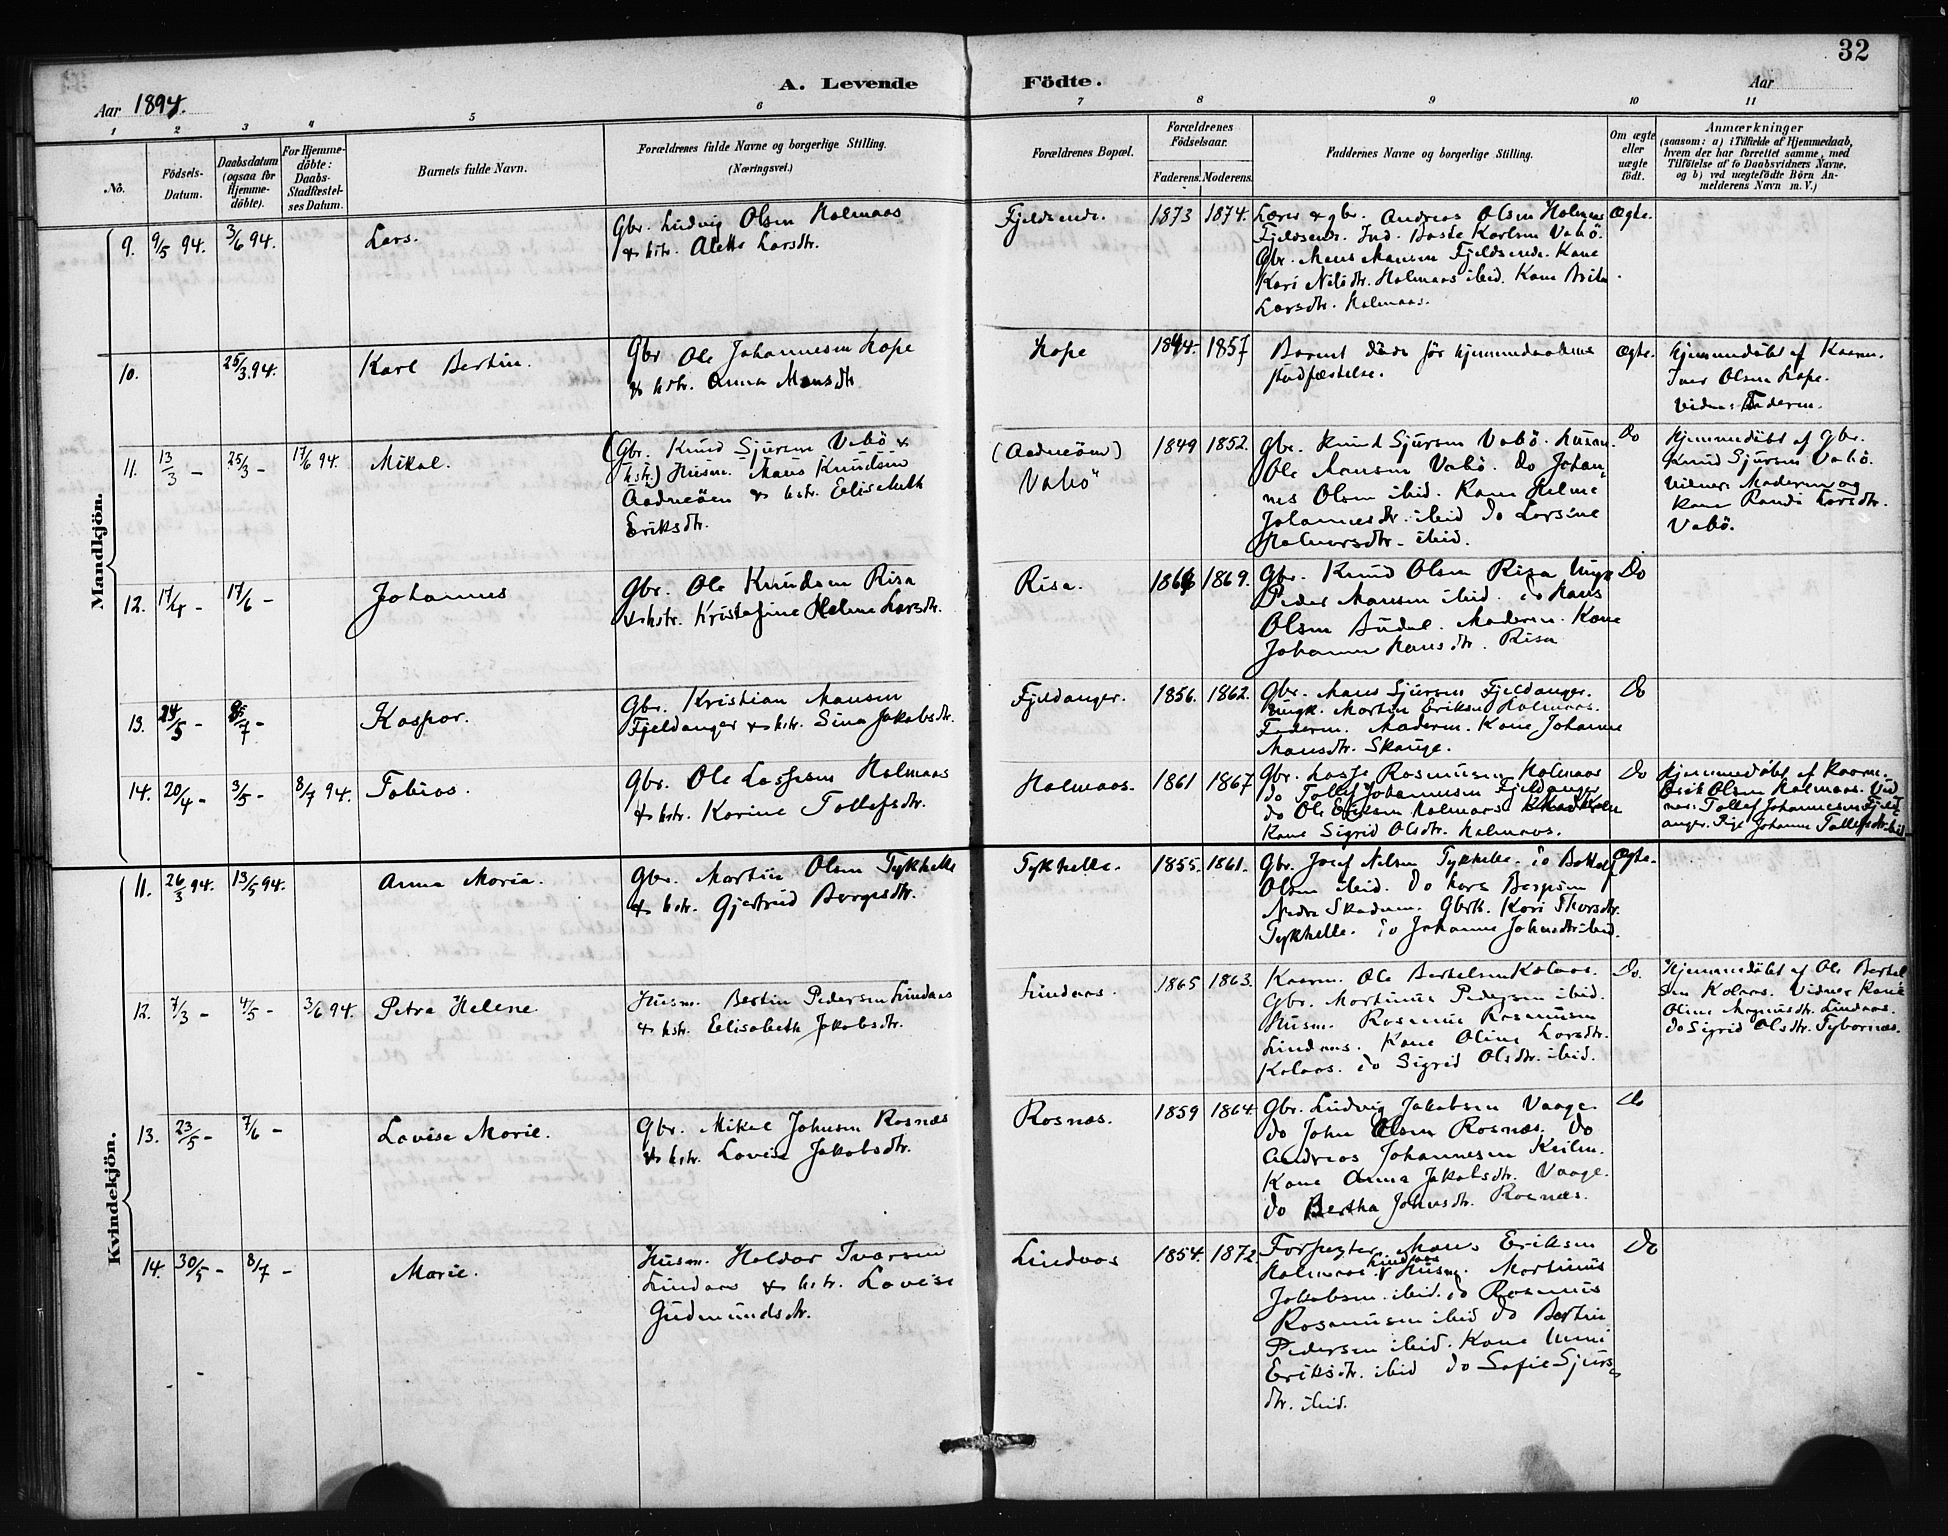 32
A. Levende Födte.
Aar 1894.
Aar
1 2 3 4 5 6 7 8 9 10 11
No.
Födsels-Datum.
Daabsdatum (ogsaa for Hjemme-döbte).
For Hjemme-döbte: Daabs-Stadfæstel-ses Datum.
Barnets fulde Navn.
Forældrenes fulde Navne og borgerlige Stilling. (Næringsvei.)
Forældrenes Bopæl.
Forældrenes Födselsaar.
Faderens. Moderens.
Faddernes Navne og borgerlige Stilling.
Om ægte eller uægte födt.
Anmærkninger
(saasom: a) i Tilfælde af Hjemmedaab, hvem der har forrettet samme, med Tilföielse af to Daabsvidners Navne, og b) ved uægtefödte Börn An-melderens Navn m. V.)
Mandkjön.
9. 9/5 94. 3/6 94. Lars.
Gbr. Ludvig Olsen Holmaas
& hstr. Alette Larsdtr.
Fjeldsende. 1873 1874.
Lærer & gbr. Andreas Olsen Holmaas
Fjeldsende. Ind. Baste Karlsen Vabö.
Gbr. Mons Monsen Fjeldsende. Kone
Kari Nilsdtr. Holmaas ibid. Kone Brita
Larsdtr. Holmaas.
Ægte.
10. 25/3.94. Karl Bertin.
Gbr. Ole Johannesen Hope
& hstr. Anna Monsdtr.
Hope 1844. 1857
Barnet döde för hjemmedaabens
stadfæstelse.
Ægte.
Hjemmedöbt af Kaarm.
Iver Olsen Hope.
Vidne: Faderen.
11. 13/3 - 25/3 - 17/6 94. Mikal.
(Gbr. Knud Sjursen Vabö &
hstr.) Husm. Hans Knudsen
Aadneöen & hstr. Elisabeth
Eriksdtr.
(Aadneöen)
Vabö
1849 1852.
Gbr. Knud Sjursen Vabö. Husm.
Ole Monsen Vabö. Do Johan-
nes Olsen ibid. Kone Helene
Johannesdtr. ibid Do Larsine
Halvorsdtr. ibid.
Do
Hjemmedöbt af Gbr.
Knud Sjursen Vabö.
Vidner Moderen og
Kone Randi Larsdtr.
Vabö.
12. 17/4 - 17/6 - Johannes
Gbr. Ole Knudsen Risa
& hstr. Kristofine Helene Larsdtr.
Risa. 1866 1869.
Gbr. Knud Olsen Risa Ungk.
Peder Hansen ibid. Do Hans
Olsen Audal. Moderen. Kone
Johanne Hansdtr. Risa
Do
13. 24/5 - 8/7 - Kaspar.
Gbr. Kristian Monsen
Fjeldanger & hstr. Sina Jakobsdtr.
Fjeldanger. 1856. 1862.
Gbr. Mons Sjursen Fjeldanger.
Ungk. Martin Eriksen Holmaas.
Faderen. Moderen. Kone Johanne
Monsdtr. Skauge.
Do
14. 20/4 - 3/5 - 8/7 94. Tobias.
Gbr. Ole Lassesen Holmaas
& hstr. Karine Tollefsdtr.
Holmaas. 1861 1867
Gbr. Lasse Rasmusen Holmaas
do Tollef Johannesen Fjeldanger
do Ole Eriksen Holmaas
Kone Sigrid Olsdtr. Holmaas.
Do
Hjemmedöbt af Kaarm.
Erik Olsen Holmaas. Vid
ner: Tollef Johannesen Fjeld-
anger. Pige Johanne Tollefsdtr. ibid
Kvindekjön.
11. 26/3 94. 13/5 94. Anna Maria.
Gbr. Martin Olsen Tykhelle
& hstr. Gjertrud Borgesdtr.
Tykhelle. 1855. 1861.
Gbr. Josef Nilsen Tykhelle. Do Botholf
Olsen ibid. Do Lars Borgesen
Nedre Skodven. Gbrk. Kari Thorsdtr.
Tykhelle. Do Johanne Johnsdtr. ibid.
Ægte.
12. 7/3 - 4/5 - 3/6 94. Petra Helene.
Husm. Bertin Pedersen Lindaas
& hstr. Elisabeth Jakobsdtr.
Lindaas. 1865 1863.
Kaarm. Ole Bertelsen Kolaas.
Gbr. Martinus Pedersen ibid.
Husm. Rasmus Rasmusen
Lindaas. Kone Oline Larsdtr.
Kolaas. Do Sigrid Olsdtr. ibid.
Do.
Hjemmedöbt af Ole Bertel
sen Kolaas. Vidner Kone
Oline Magnusdtr. Lindaas.
Do Sigrid Olsdtr. Tybornæs.
13. 23/5 - 7/6 - Lovise Marie.
Gbr. Mikal Johnsen Rosnæs
& hstr. Lovise Jakobsdtr.
Rosnæs. 1859 1864.
Gbr. Ludvig Jakobsen Vaage.
Do John Olsen Rosnæs. Do
Andreas Johannesen Keilen.
Kone Anna Jakobsdtr. Vaage.
Do Bertha Johnsdtr. Rosnæs.
Do
14. 30/5 - 8/7 - Marie.
Husm. Haldor Ivarsen
Lindaas & hstr. Lovise
Gudmundsdtr.
Lindaas 1854. 1872
Forpagter Mons Eriksen
Holmaas. Lindaas Husm. Martinus
Jakobsen. ibid. Do Rasmus
Rasmusen ibid Do Bertin
Pedersen ibid. Kone Unni
Eriksdtr. ibid Do Sofie Sjurs-
dtr. ibid.
Do